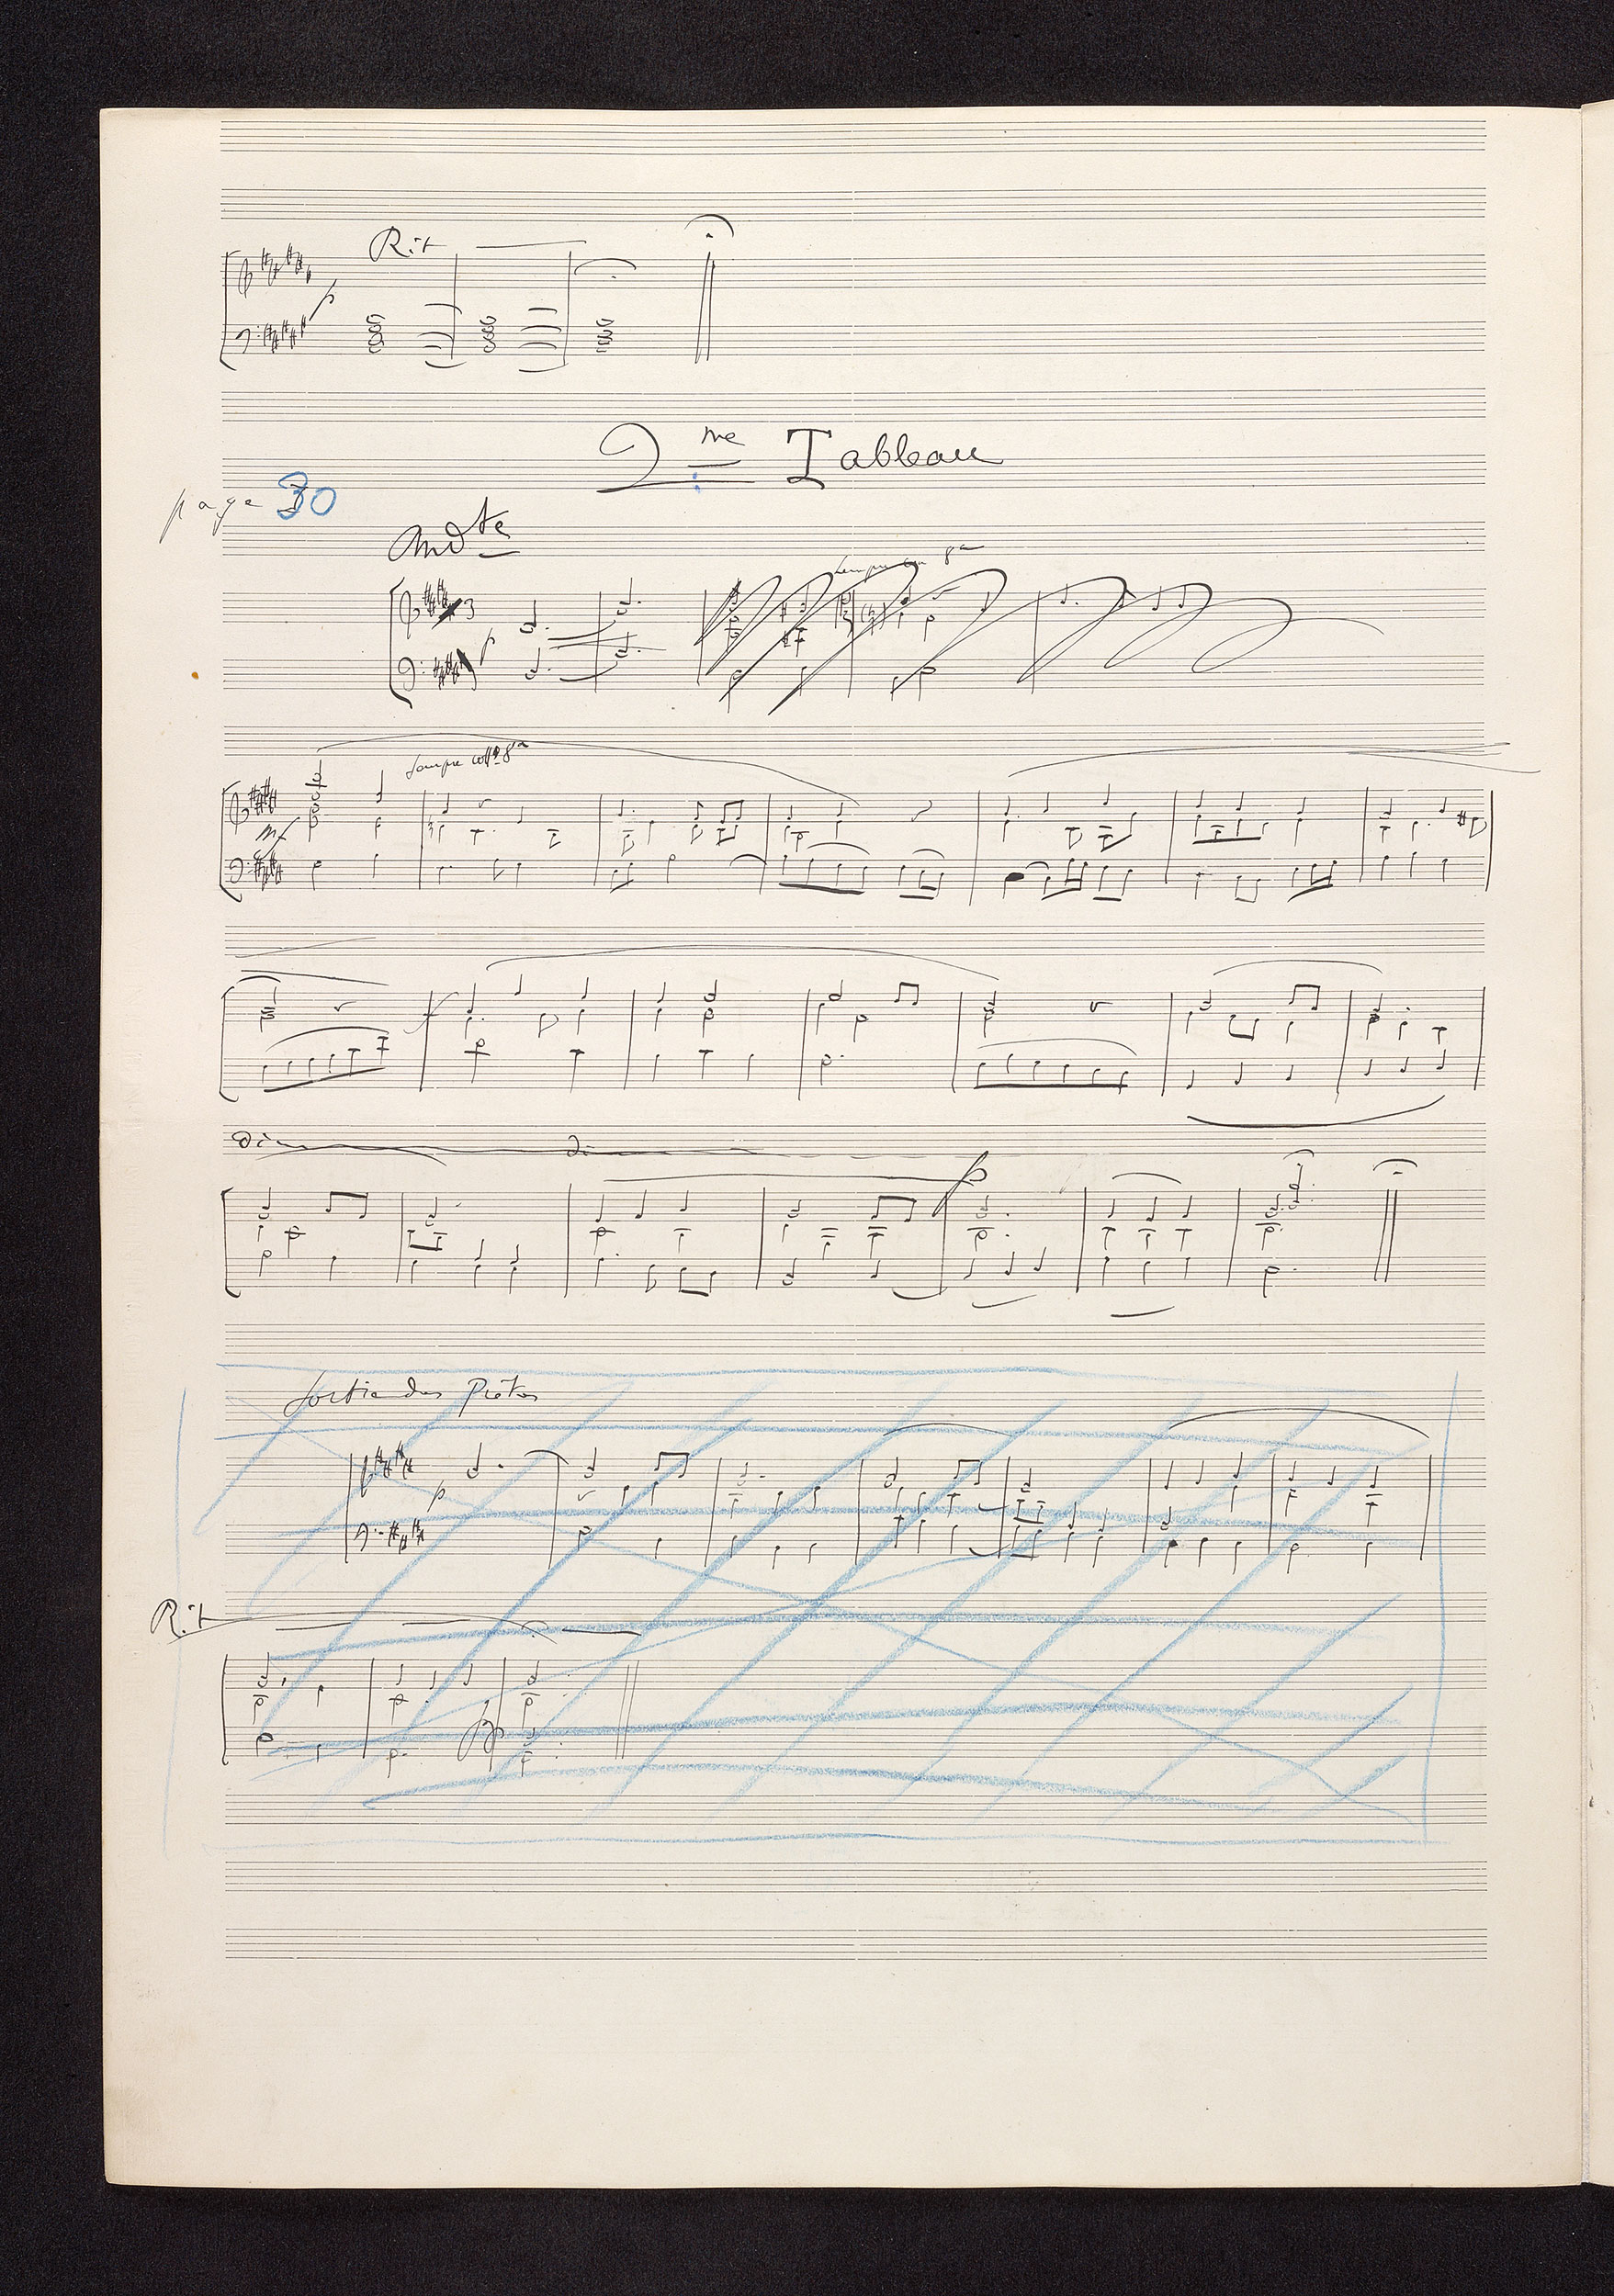 Rit
p
2me Tableau
page 30
Andte
3
p
sempre con 8a
Sempre coll 8a
mf
f
dim
di
p
Sortie des Prêtres
p
Rit
pp